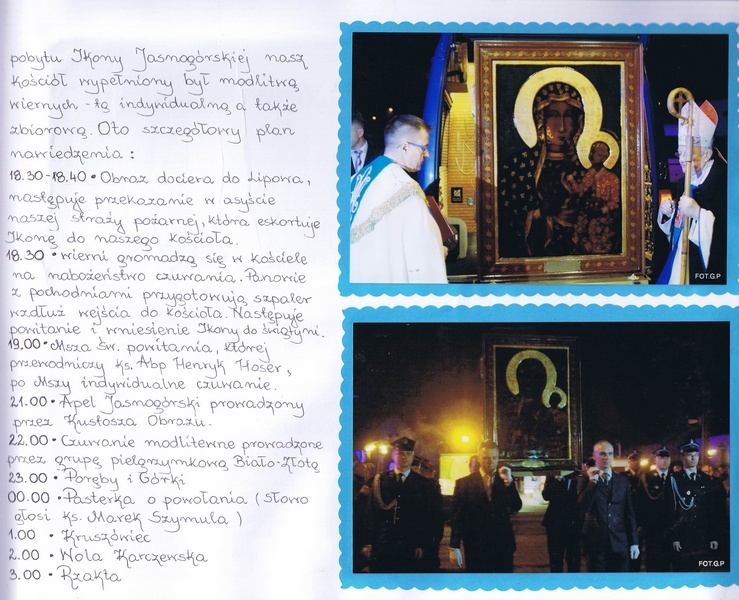 pobytu Ikony Jasnogórskiej nasz
kościół wypełniony był modlitwą
wiernych - tą indywidualną a także
zbiorową. Oto szczegółowy plan
nawiedzenia :
18.30-18.40 • Obraz dociera do Lipowa,
następuje przekazanie w asyście
naszej straży pożarnej, która eskortuje
Ikonę do naszego kościoła.
18.30 • wierni gromadzą się w kościele
na nabożeństwo czuwania. Panowie
z pochodniami przygotowują szpaler
wzdłuż wejścia do kościoła. Następuje
powitanie i wniesienie Ikony do świątyni.
19.00 • Msza św. powitania, której
przewodniczy ks. Abp Henryk Hoser,
po Mszy indywidualne czuwanie.
21.00 • Apel Jasnogórski prowadzony
przez Kustosza Obrazu.
22.00 • Czuwanie modlitewne prowadzone
przez grupę pielgrzymkową Biało-Złotą
23.00 • Poręby i Górki
00.00 • Pasterka o powołania (słowo
głosi ks. Marek Szymula)
1.00 • Kruszówiec
2.00 • Wola Karczewska
3.00 • Rzakta
FOT.G.P
FOT.G.P